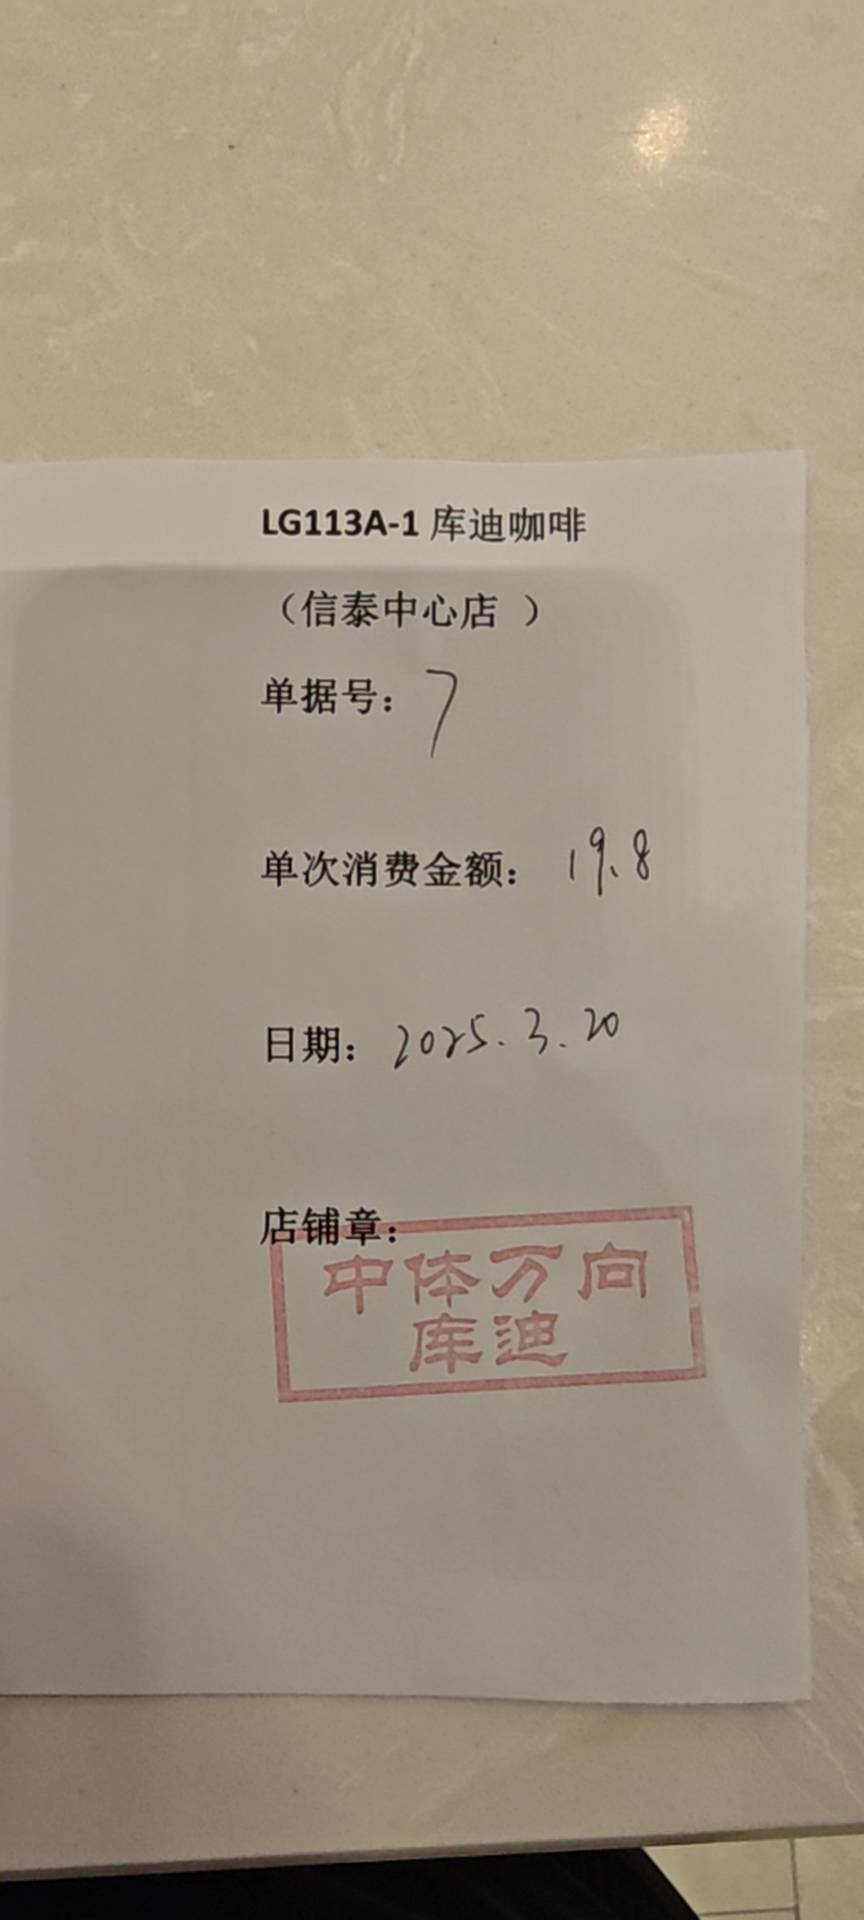 LG113A-1 库迪咖啡
（信泰中心店 ）
单据号：7
单次消费金额：19.8
日期：2025.3.20
店铺章：
中体万向
库迪